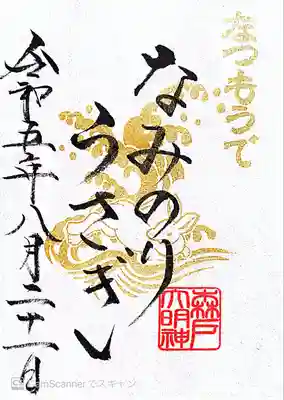 なつもうで
なみのり
うさぎ
令和五年八月二十一日
森戸
大明神
CS CamScanner でスキャン